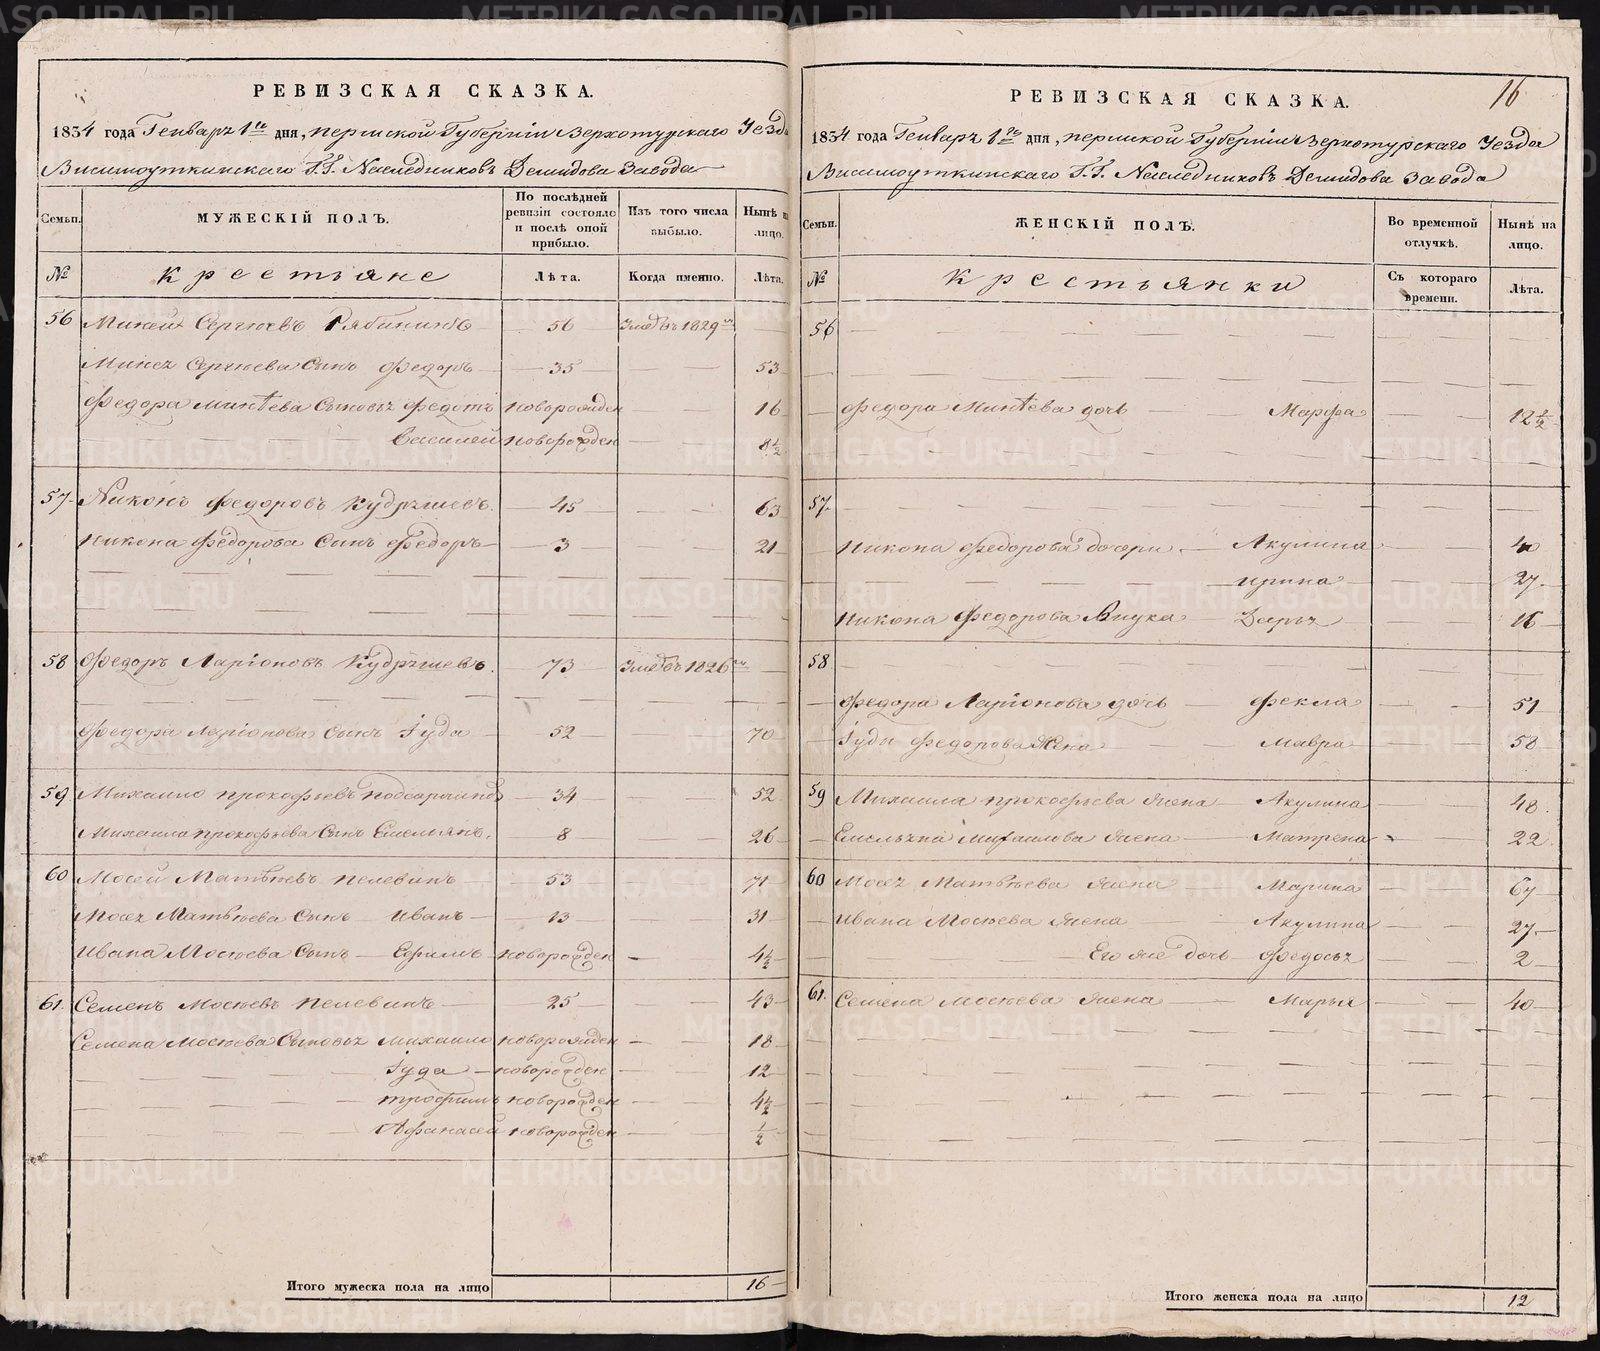 РЕВИЗСКАЯ СКАЗКА.
1834 года Генваря 1го дня, Пермской Губерніи Верхотурскаго Уезда
Висимоуткинскаго Г.Г. Наследниковъ Демидова Завода
Семьи. МУЖЕСКІЙ ПОЛЪ. По послѣдней ревизіи состояло и послѣ оной прибыло. Изъ того числа выбыло. Нынѣ на лицо.
№ Крестьяне Лѣта. Когда именно. Лѣта.
56 Миней Сергеевъ Рябининъ 56 Умеръ въ 1829м
Минея Сергеева Сынъ Федоръ 35 53
Федора Минѣева Сыновья Федотъ новорожден 16
Василей новорожден 8½
57 Никонъ Федоровъ Кудряшевъ. 45 63
Никона Федорова Сынъ Федоръ 3 21
58 Федоръ Ларіоновъ Кудряшевъ. 73 Умеръ въ 1826м
Федора Ларіонова Сынъ Іуда 52 70
59 Михаило Прокофьевъ 34 52
Михаила Прокофьева Сынъ Емельянъ. 8 26
60 Мосей Матвеевъ Пелевинъ 53 71
Мосея Матвеева Сынъ Иванъ 13 31
Ивана Мосеева Сынъ Ефимъ новорожден 4½
61. Семенъ Мосеевъ Пелевинъ 25 43
Семена Мосеева Сыновья Михаило новорожден 18
Іуда новорожден 12
Трофимъ новорожден 4½
Афанасей новорожден ½
Итого мужеска пола на лицо 16
16
РЕВИЗСКАЯ СКАЗКА.
1834 года Генваря 1го дня, Пермской Губерніи Верхотурскаго Уезда
Висимоуткинскаго Г.Г. Наследниковъ Демидова Завода
Семьи. ЖЕНСКІЙ ПОЛЪ. Во временной отлучкѣ. Нынѣ на лицо.
№ Крестьянки Съ котораго времени. Лѣта.
56
Федора Минѣева дочь Марфа 12½
57
Никона Федорова дочери Акулина 40
Ирина 27
Никона Федорова внука Дарья 16
58
Федора Ларіонова дочь Фекла 51
Іуды Федорова жена Мавра 58
59 Михаила Прокофьева жена Акулина 48
Емельяна Михаилова жена Матрена 22
60 Мосея Матвеева жена Марина 67
Ивана Мосеева жена Акулина 27
Его же дочь Федосья 2
61. Семена Мосеева жена Марья 40
Итого женска пола на лицо 12